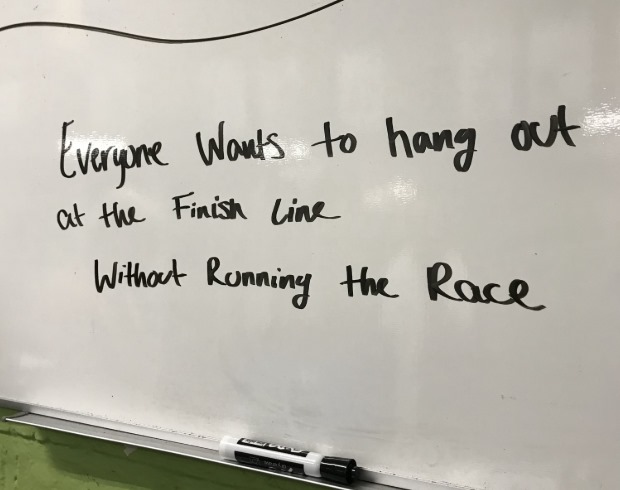 Everyone Wants to hang out
at the Finish Line
Without Running the Race